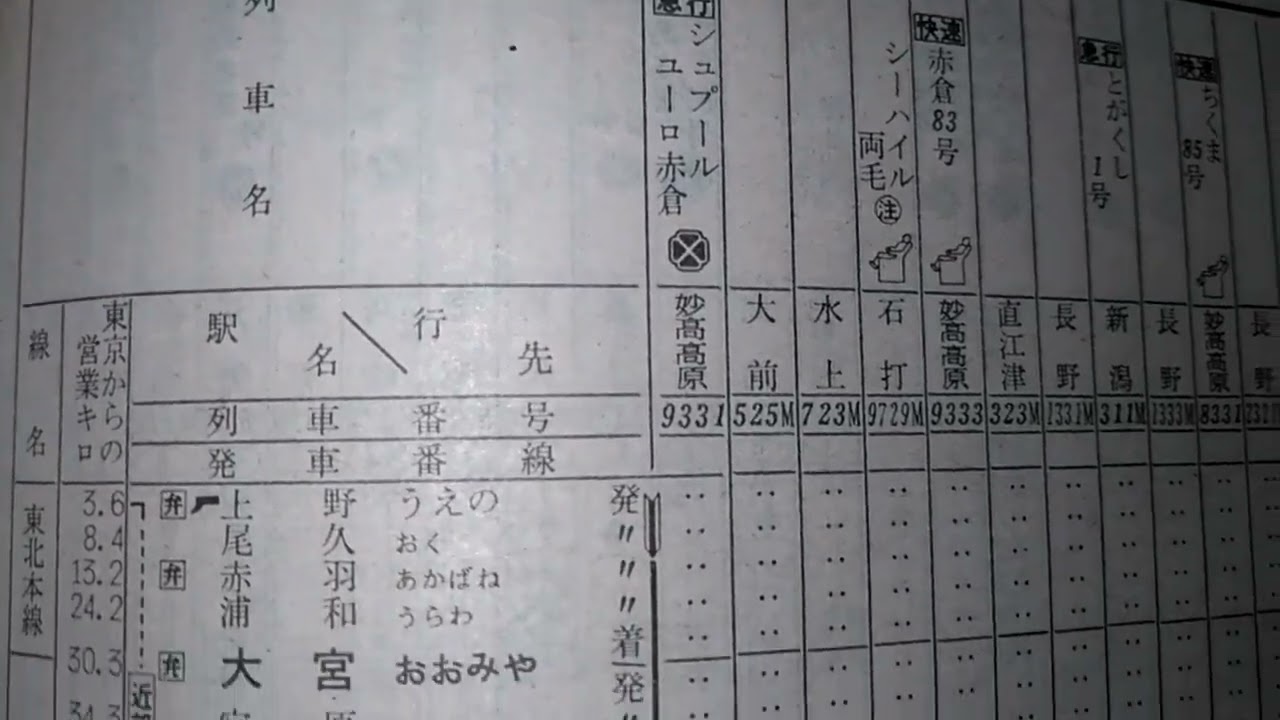 列車名
急行
シュプール
ユーロ赤倉
シーハイル
両毛
注
快速
赤倉83号
急行
とがくし
1号
快速
ちくま
85号
線名
東京からの
営業キロ
駅名 行先
妙高高原 大前 水上 石打 妙高高原 直江津 長野 新潟 長野 妙高高原 長野
列車番号 9331 525M 723M 9729M 9333 323M 1331M 311M 1333M 8331
発車番線
東北本線
3.6 弁 上野 うえの 発
8.4 尾久 おく 〃
13.2 弁 赤羽 あかばね 〃
24.2 浦和 うらわ 〃
着
30.3 弁 大宮 おおみや
発
34.3